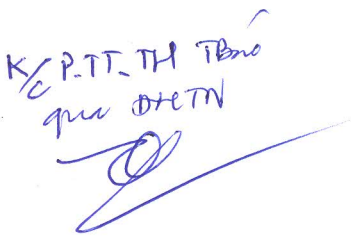 K/c P.TT-TH TBáo
qua ĐHTN